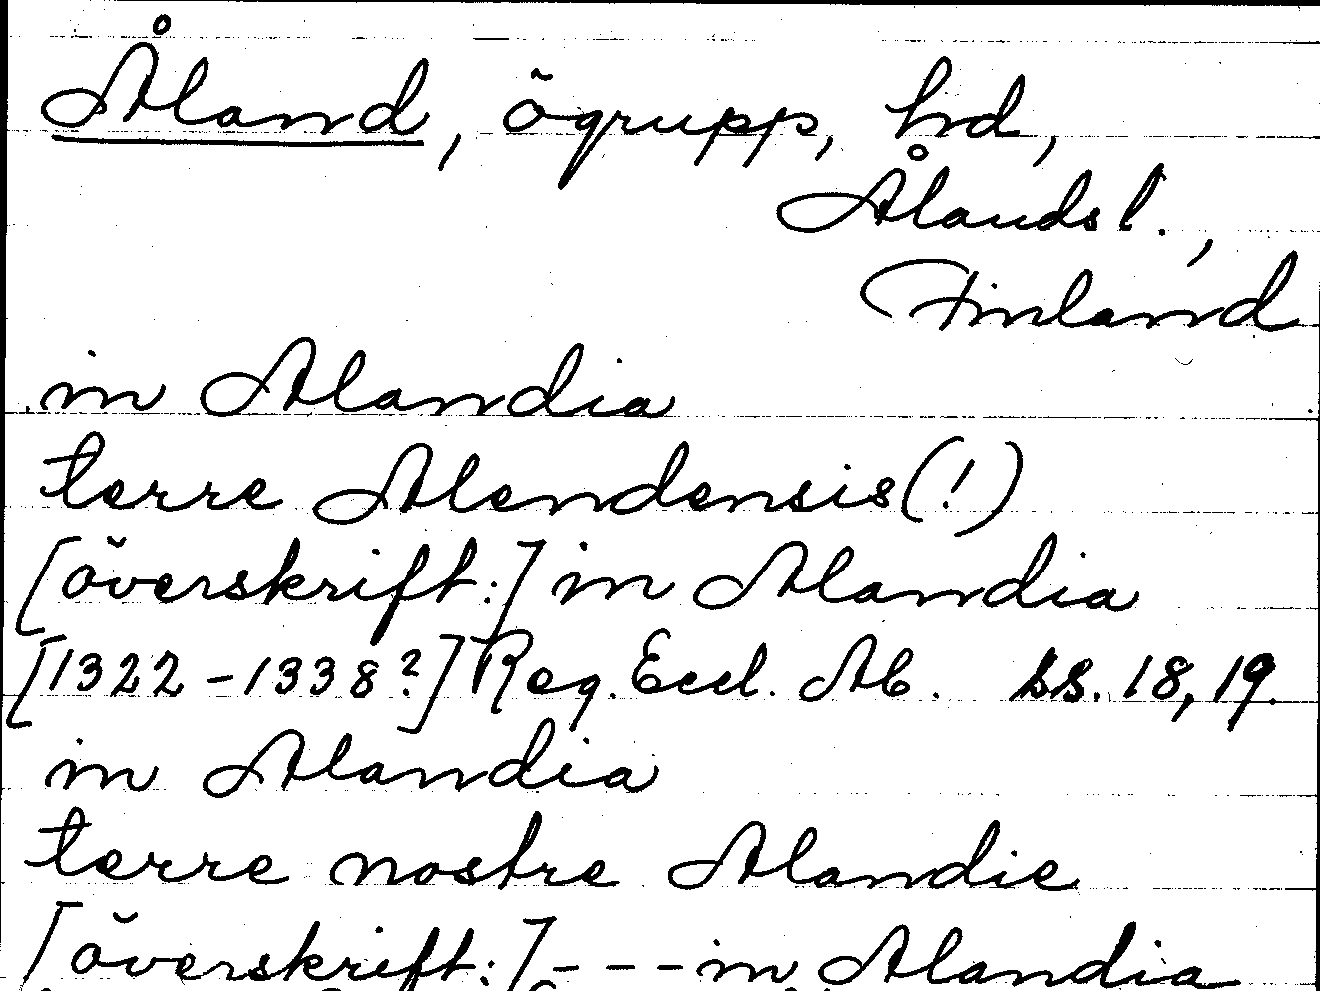 Åland, ögrupp, hd,
Ålands l.,
Finland
in Alandia
terre Alendensis (!)
[överskrift:] in Alandia
[1322-1338?] Reg. Eccl. Ab. ss. 18, 19.
in Alandia
terre nostre Alandie
[överskrift:] - - - in Alandia